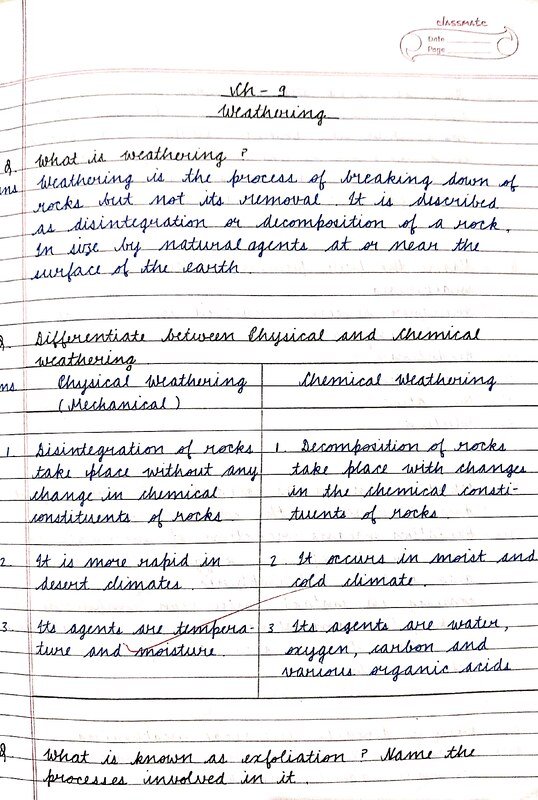 classmate
Date
Page
Ch - 9
Weathering
Q. What is weathering ?
ans Weathering is the process of breaking down of
rocks but not its removal. It is described
as disintegration or decomposition of a rock.
In size by natural agents at or near the
surface of the earth.
Q. Differentiate between Physical and Chemical
weathering
ans Physical Weathering
(Mechanical)
1. Disintegration of rocks
take place without any
change in chemical
constituents of rocks.
2. It is more rapid in
desert climates.
3. Its agents are tempera-
ture and moisture.
Chemical Weathering
1. Decomposition of rocks
take place with changes
in the chemical consti-
tuents of rocks.
2 It occurs in moist and
cold climate.
3 Its agents are water,
oxygen, carbon and
various organic acids
Q. What is known as exfoliation ? Name the
processes involved in it.